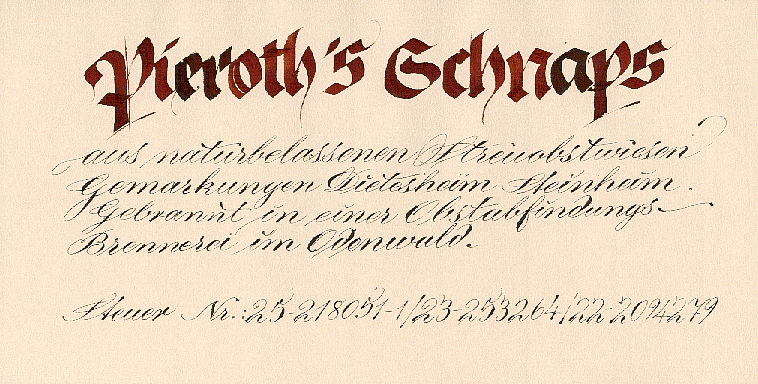 Pieroth's Schnaps
aus naturbelassenen Streuobstwiesen
Gemarkungen Dietesheim Steinheim.
Gebrannt in einer Obstabfindungs-
Brennerei im Odenwald.
Steuer Nr.: 25-218051-1/23-253264/22-2094279